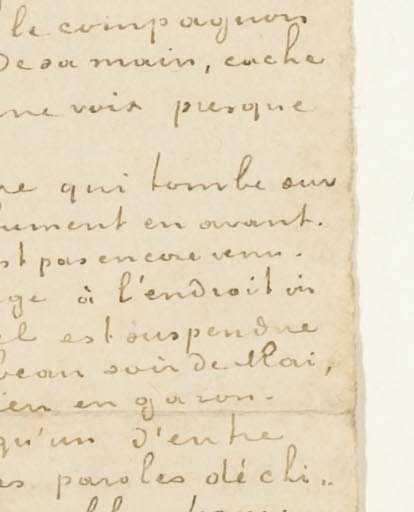 le compagnon
De sa main, cache
une voix presque
qui tombe sur
ument en avant.
st pas encore venu.
ge à l'endroit vis
el est suspendue
beau soir de Mai,
ien en gazon.
qu'un d'entre
es paroles déchi..